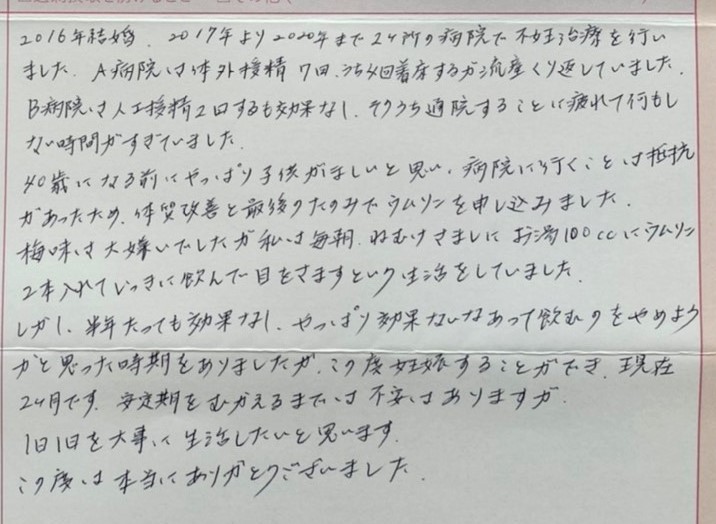 2016年結婚、2017年より2020年まで2ヶ所の病院で不妊治療を行い
ました。A病院は体外授精7回、うち4回着床するが流産くり返していました。
B病院は人工授精2回するも効果なし。そのうち通院することに疲れて何もし
ない時間がすぎていました。
40歳になる前にやっぱり子供がほしいと思い、病院に行くことは抵抗
があったため、体質改善と最後のたのみでウムリンを申し込みました。
梅味は大嫌いでしたが私は毎朝、ねむけさましにお湯100ccにウムリン
2本入れていっきに飲んで目をさますという生活をしていました。
しかし、半年たっても効果なし、やっぱり効果ないなあって飲むのをやめよう
かと思った時期もありましたが、この度妊娠することができ、現在
2ヶ月です。安定期をむかえるまでは不安はありますが、
1日1日を大事に生活したいと思います。
この度は本当にありがとうございました。